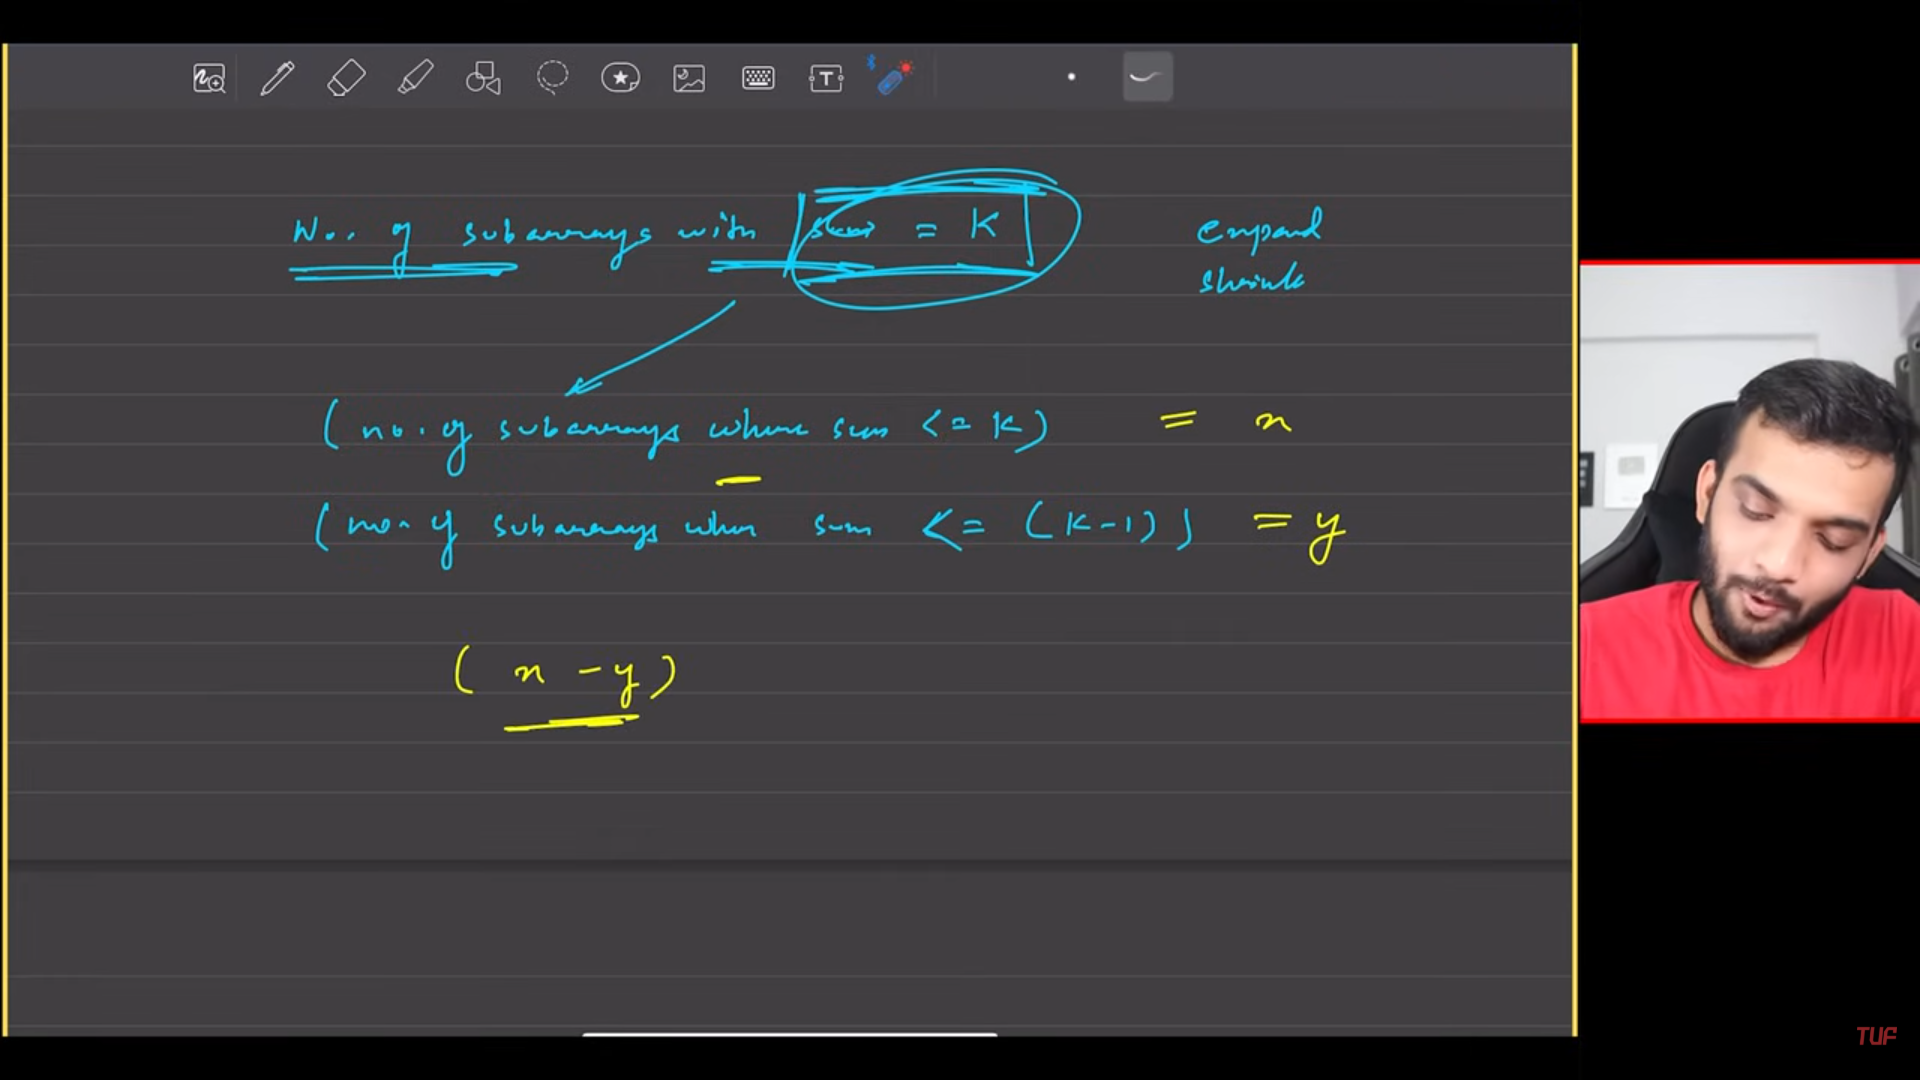 No. of subarrays with sum = K
expand
shrink
(no. of subarrays where sum <= K) = x
(no. of subarrays where sum <= (K-1)) = y
(x - y)
TUF